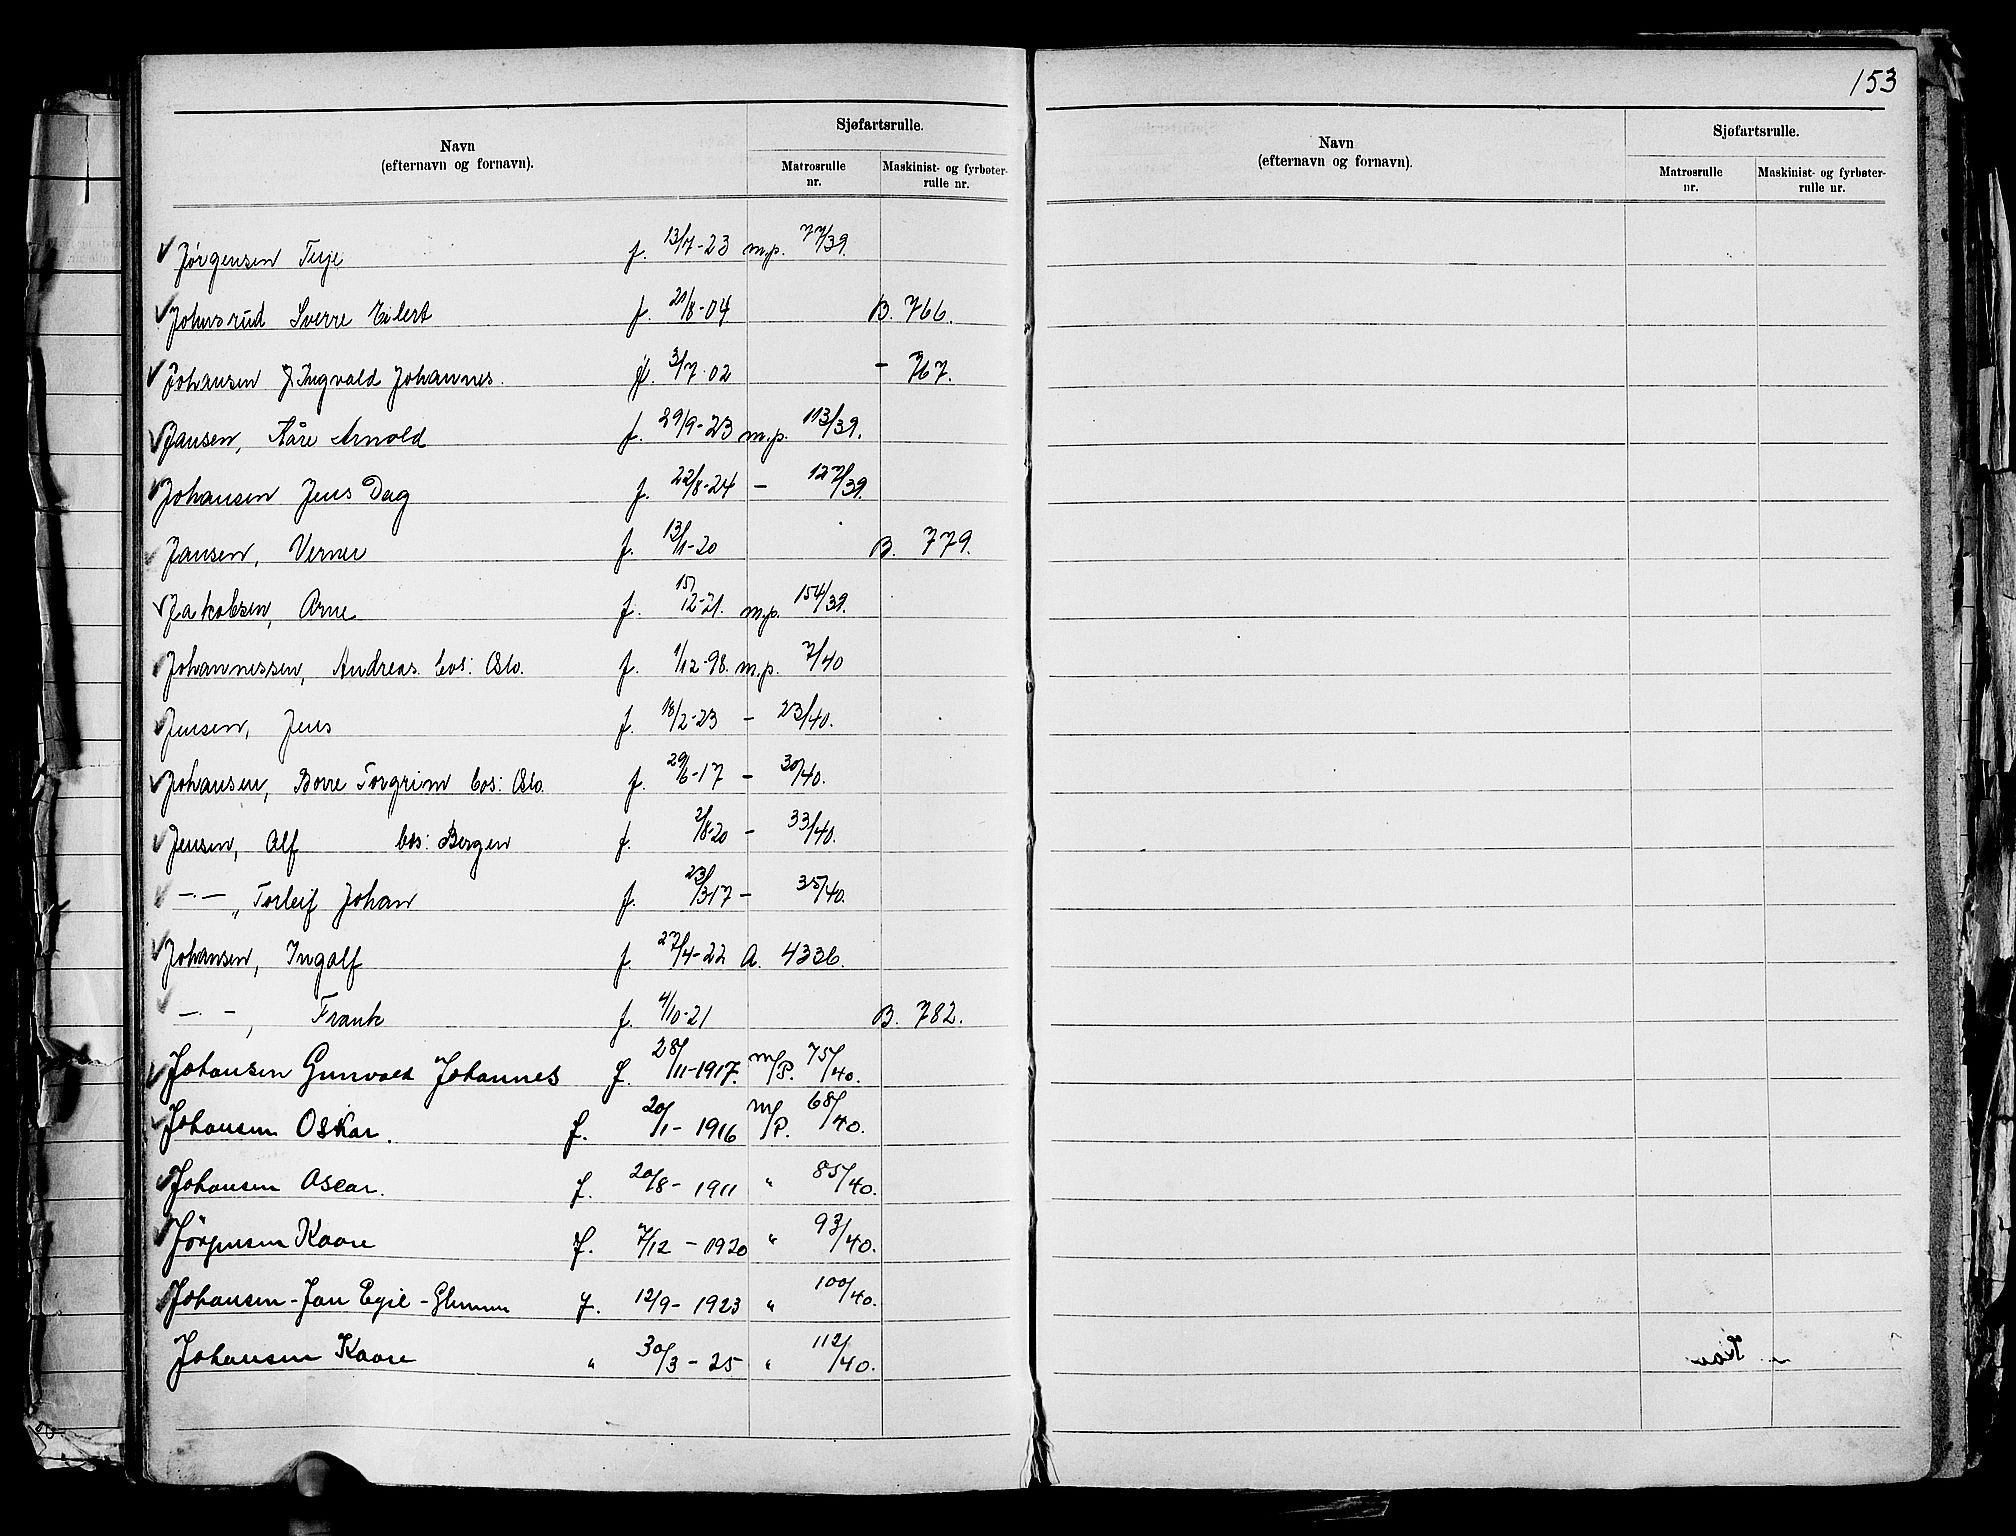 153
Navn
(efternavn og fornavn).
Sjøfartsrulle.
Matrosrulle nr.
Maskinist- og fyrbøter-rulle nr.
Jørgensen Terje f. 13/7-23 m.p. 77/39.
Johnsrud Sverre Eilert f. 21/8-04 B. 766.
Johansen Ingvald Johannes. f. 3/7-02 - 767.
Jansen, Kåre Arnold f. 29/9-23 m.p. 113/39.
Johansen Jens Dag f. 22/8-24 - 127/39.
Jansen, Verner f. 13/1-20 B. 779.
Jakobsen, Arne f. 15/12-21. m.p. 154/39.
Johannessen, Andreas. bos: Oslo. f. 1/12-98. m.p. 7/40
Jensen, Jens f. 18/2-23 - 23/40.
Johansen, Borre Torgrim bos: Oslo. f. 29/6-17 - 30/40.
Jensen, Alf bos: Bergen f. 2/8-20 - 33/40.
—·—, Torleif Johan f. 23/3 17 - 35/40.
Johansen, Ingolf f. 27/4-22 A. 4336.
—·—, Frank f. 4/10-21 B. 782.
Johansen Gunvald Johannes f. 28/11-1917. m/P. 75/40.
Johansen Oskar. f. 20/1-1916 m/P. 68/40.
Johansen Oscar. f. 20/8-1911 " 85/40.
Jørgensen Kaare f. 7/12-1920 " 93/40.
Johansen-Jan Egil- f. 12/9-1923 " 100/40.
Johansen Kaare " 30/3-25 " 112/40.
Navn
(efternavn og fornavn).
Sjøfartsrulle.
Matrosrulle nr.
Maskinist- og fyrbøter-rulle nr.